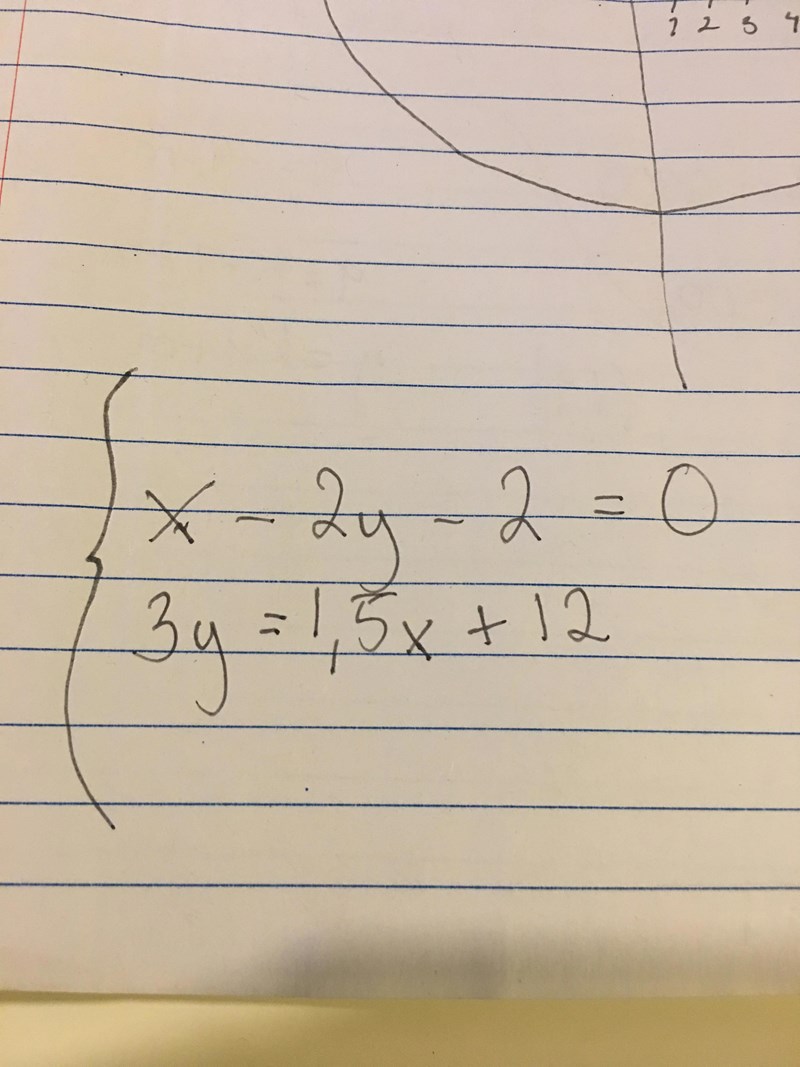 1 2 3 4
x - 2y - 2 = 0
3y = 1,5x + 12